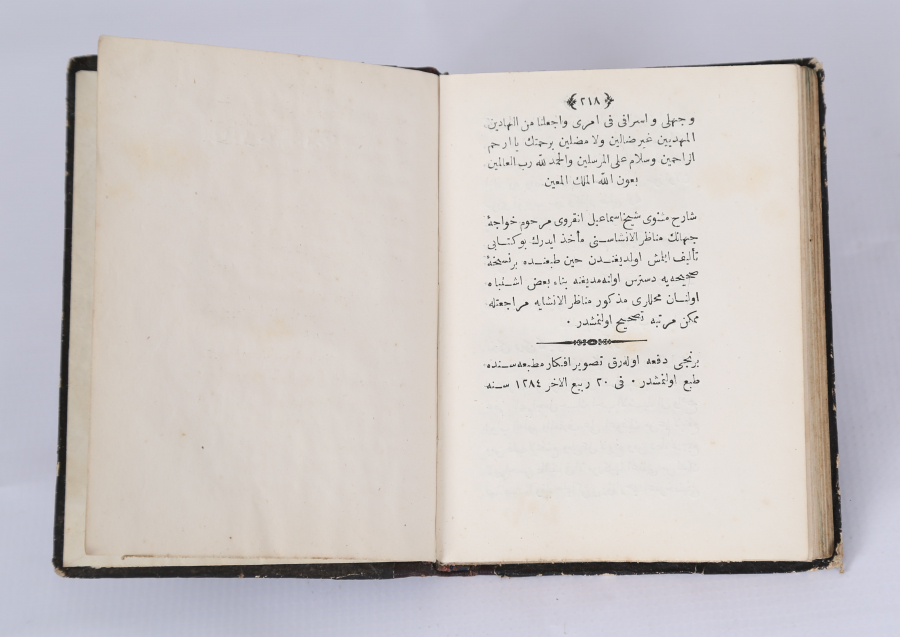 ﴿٢١٨﴾
وجهلى واسرافى فى امرى واجعلنا من الهادين
المهديين غير ضالين ولا مضلين برحمتك يا ارحم
الراحمين وسلام على المرسلين والحمد لله رب العالمين
بعون الله الملك المعين
شارح مثنوى شيخ اسماعيل انقروى مرحوم خواجۀ
جهانك مناظر الانشاسنى مأخذ ايدرك بوكتابى
تأليف ايتمش اولديغندن حين طبعنده برنسخۀ
صحيحه يه دسترس اوله مديغنه بناء بعض اشتباه
اولنان محللرى مذكور مناظر الانشايه مراجعتله
ممكن مرتبه تصحيح اولنمشدر ٠
برنجى دفعه اوله رق تصوير افكار مطبعه سنده
طبع اولنمشدر ٠ فى ٢٠ ربيع الاخر ١٢٨٤ سنه